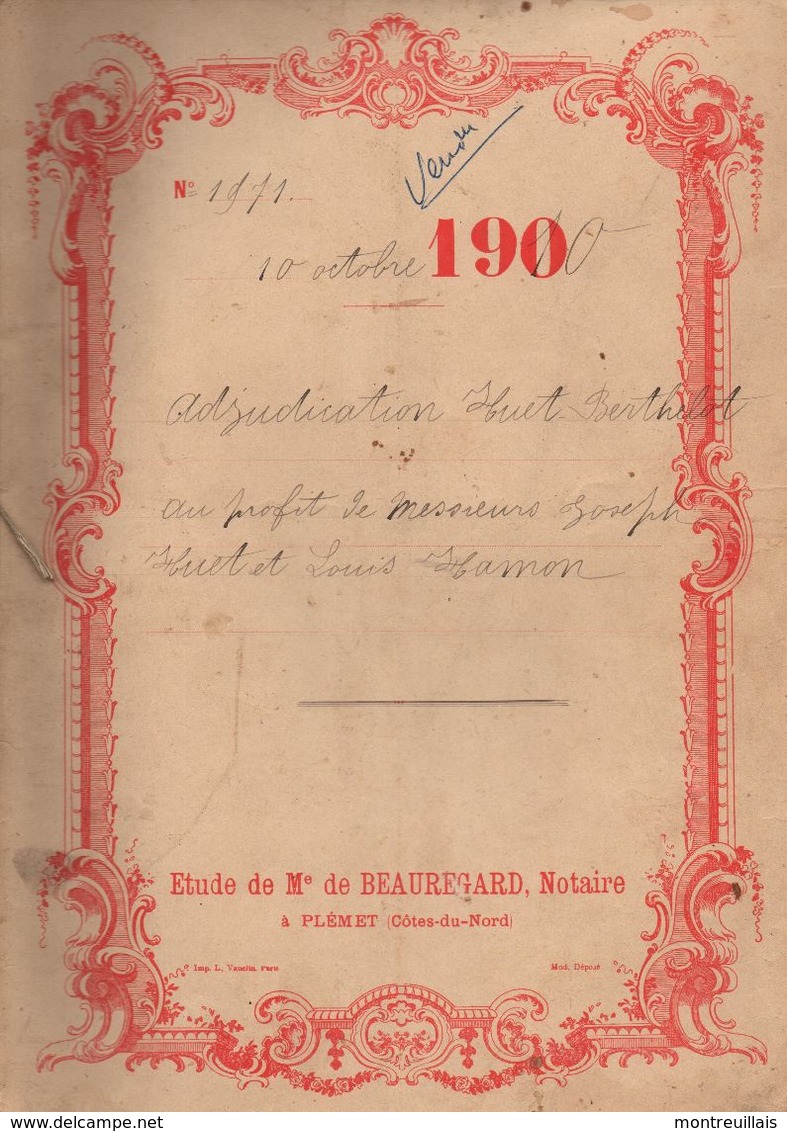 Vendu
Nº 1971.
10 octobre 19010
Adjudication Huet-Berthelot
au profit de Messieurs Joseph
Huet et Louis Hamon
Etude de Me de BEAUREGARD, Notaire
à PLÉMET (Côtes-du-Nord)
Imp. L. Paris
Mod. Déposé
montreuillais